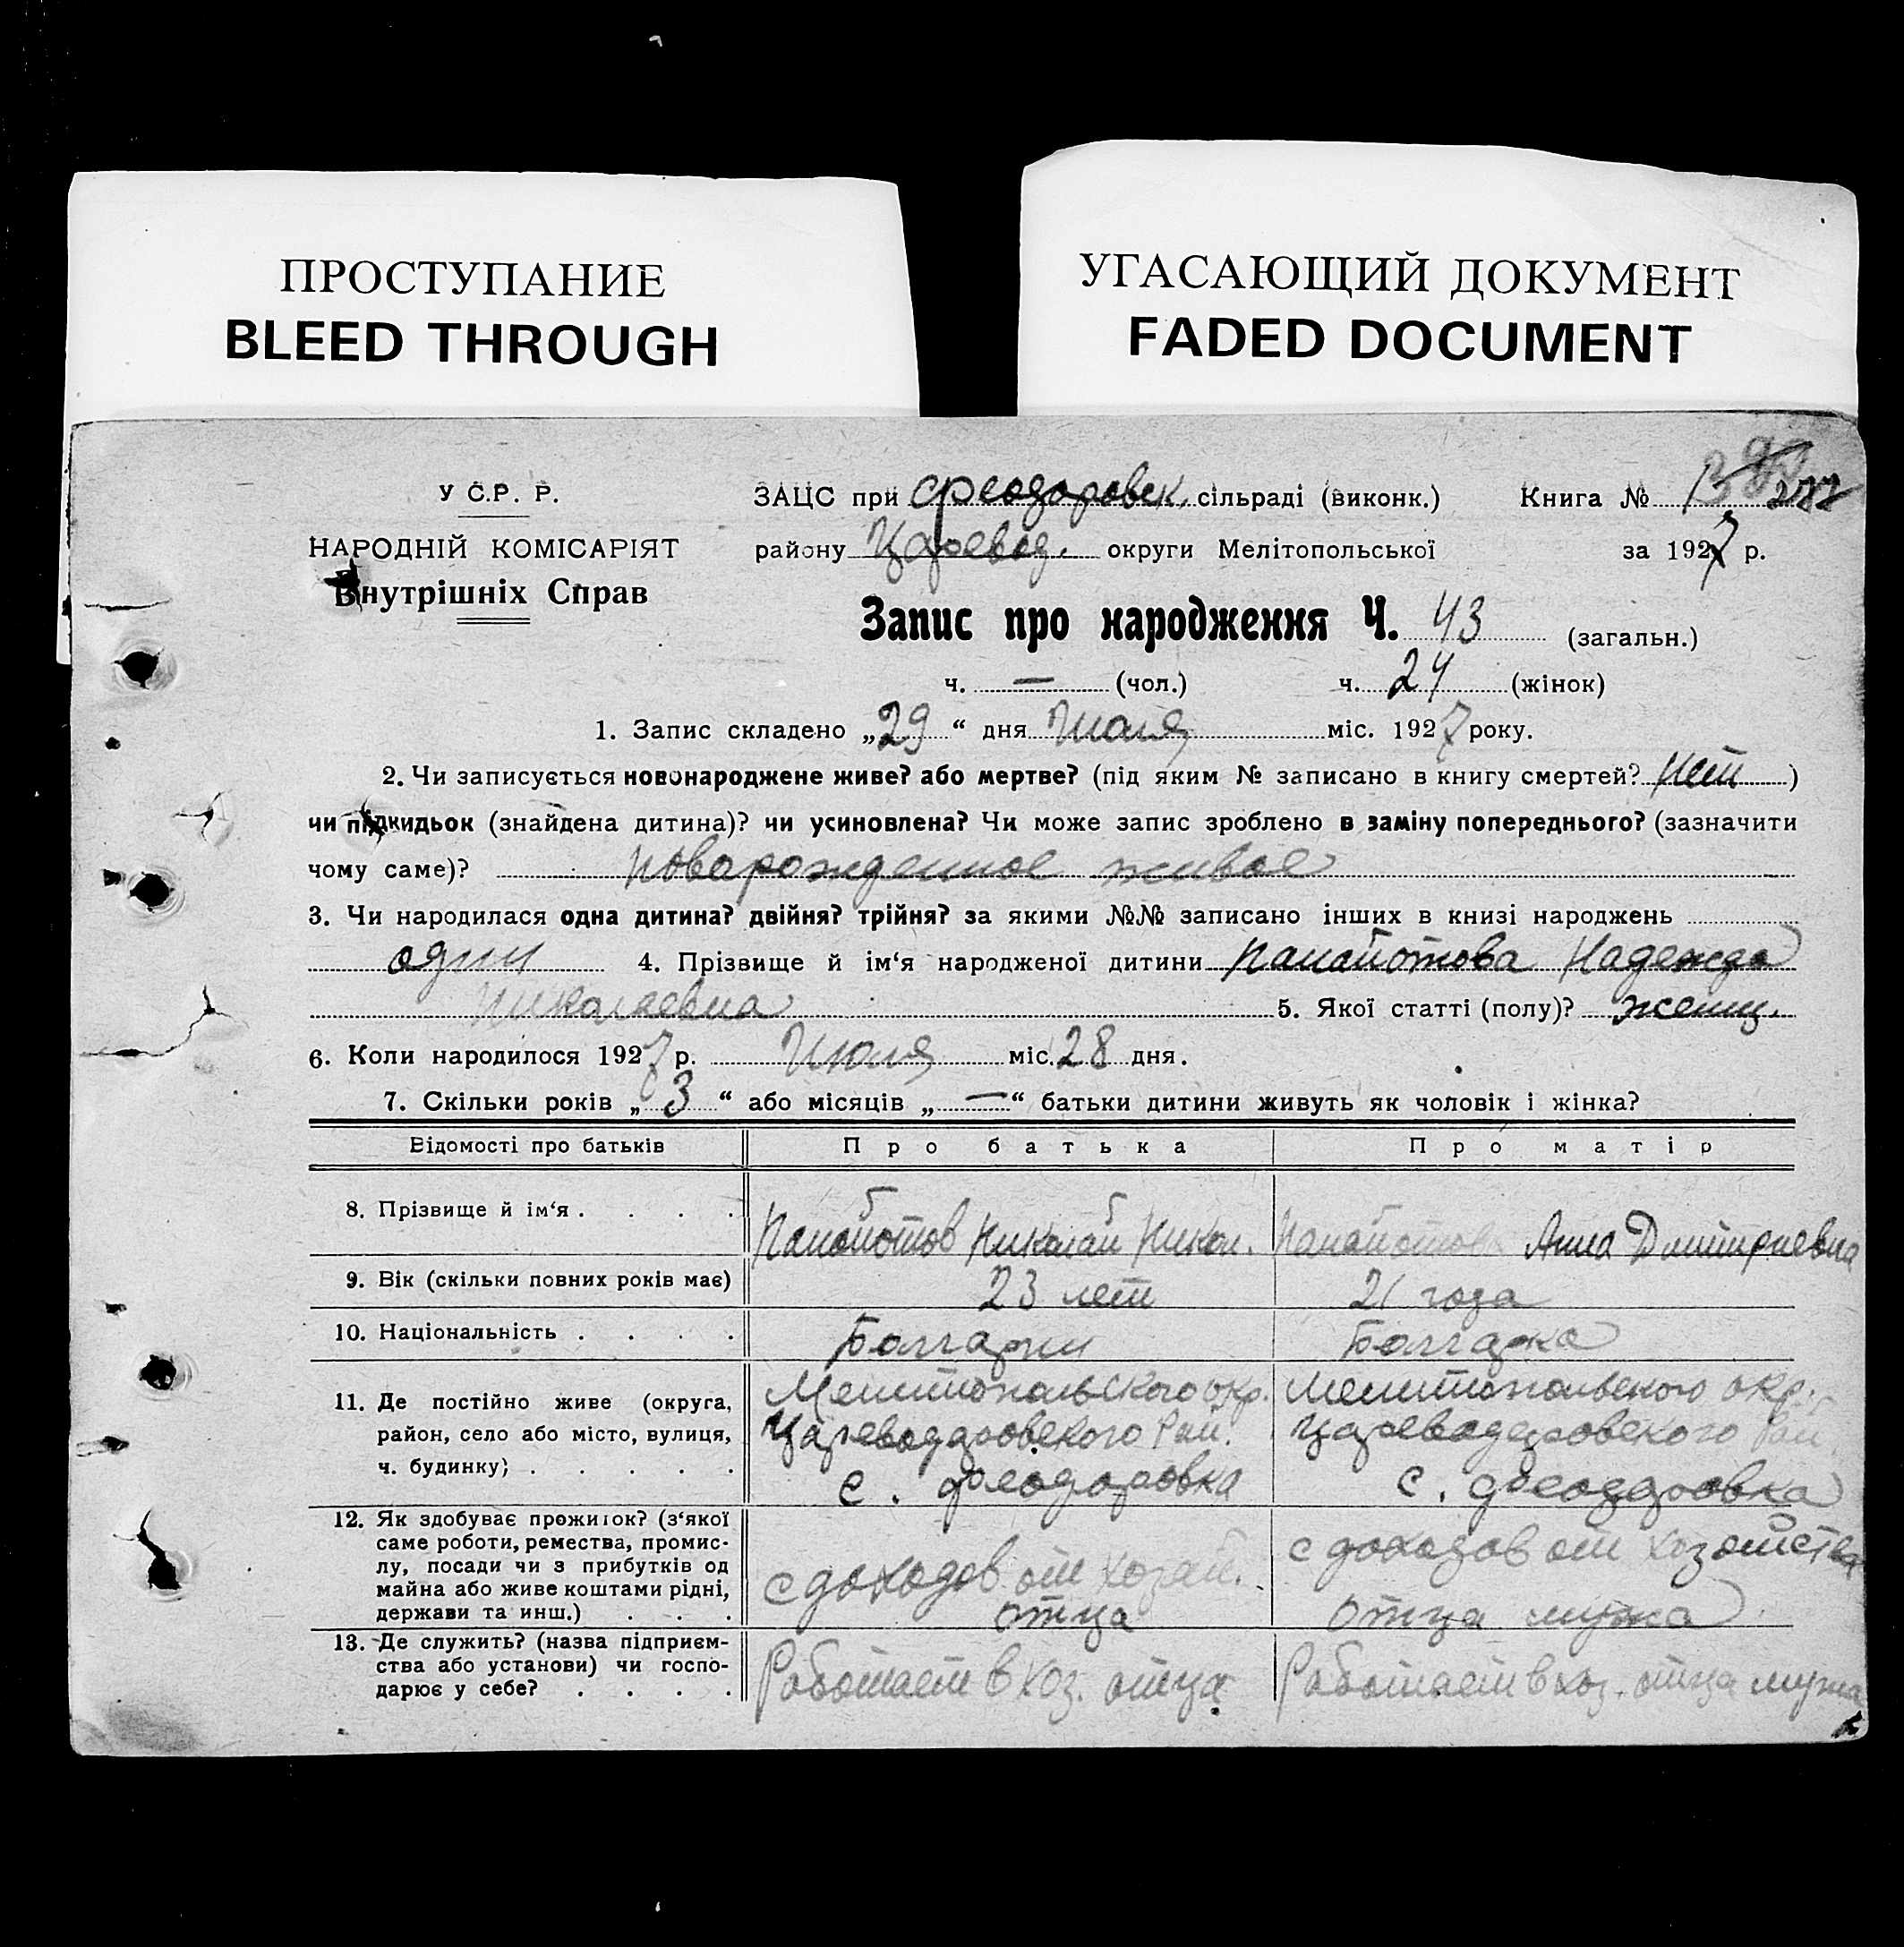 ПРОСТУПАНИЕ
BLEED THROUGH
УГАСАЮЩИЙ ДОКУМЕНТ
FADED DOCUMENT
У С.Р. Р.
НАРОДНІЙ КОМІСАРІЯТ
Внутрішніх Справ
ЗАЦС при Феодоровск. сільраді (виконк.) Книга №
району Царевод. округи Мелітопольської за 1927 р.
Запис про народження Ч. 43 (загальн.)
ч. — (чол.) ч. 24 (жінок)
1. Запис складено „29“ дня Июля міс. 1927 року.
2. Чи записується новонароджене живе? або мертве? (під яким № записано в книгу смертей? нет)
чи підкидьок (знайдена дитина)? чи усиновлена? Чи може запис зроблено в заміну попереднього? (зазначити
чому саме)? новорожденное живое
3. Чи народилася одна дитина? двійня? трійня? за якими №№ записано інших в книзі народжень
один 4. Прізвище й ім‘я народженої дитини Панайотова Надежда
Николаевна 5. Якої статті (полу)? женщ.
6. Коли народилося 1927 р. Июля міс. 28 дня.
7. Скільки років „3“ або місяців „—“ батьки дитини живуть як чоловік і жінка?
Відомості про батьків Про батька Про матір
8. Прізвище й ім‘я . . . . Панайотов Николай Никол. Панайотова Анна Дмитриевна
9. Вік (скільки повних років має) 23 лет 21 года
10. Національність . . . . Болгарин Болгарка
11. Де постійно живе (округа, район, село або місто, вулиця, ч. будинку) . . . . . Мелитопольского окр. Цареводаровского Рай. с. Феодоровка Мелитопольского окр. Цареводаровского Рай. с. Феодоровка
12. Як здобуває прожиток? (з‘якої саме роботи, ремества, промислу, посади чи з прибутків од майна або живе коштами рідні, держави та инш.) . . . с доходов от хозяй. отца с доходов от хозяйства отца мужа
13. Де служить? (назва підприємства або установи) чи господарює у себе? . . . . Работает в хоз. отца Работает в хоз. отца мужа